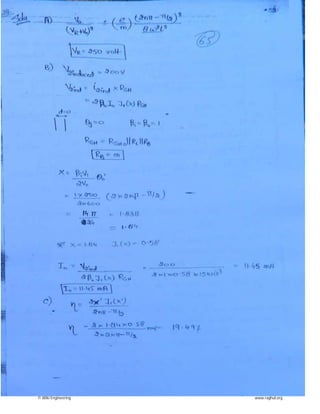 Soln
A) V₀/(V_R+V₀)² = (e/m) (2πn - π/2)²/8ω²L²
V_R = 250 volt
65
B) V₂induced = 200V
V₂ind = i₂ind × R_SH
= 2β₀I₀ J₁(x) R_SH
d=0
β₀=0 β₁=β₀=1
R_SH = R_SHO||R_L||R_B
R_B = ∞
X = βᵢV₁/2V₀ θ₀'
= 1×250/2×600 (2×2π - π/2)
= 1.838
= 1.84
X=1.84 J₁(x) = 0.58
I₀ = V₂ind/2β₀J₁(x) R_SH = 200/2×1×0.58×15×10³ = 11.45 mA
I₀ = 11.45 mA
C) η = 2x' J₁(x')/2πn - π/2
η = 2×1.84×0.58 = 19.49%
© Wiki Engineering
www.raghul.org